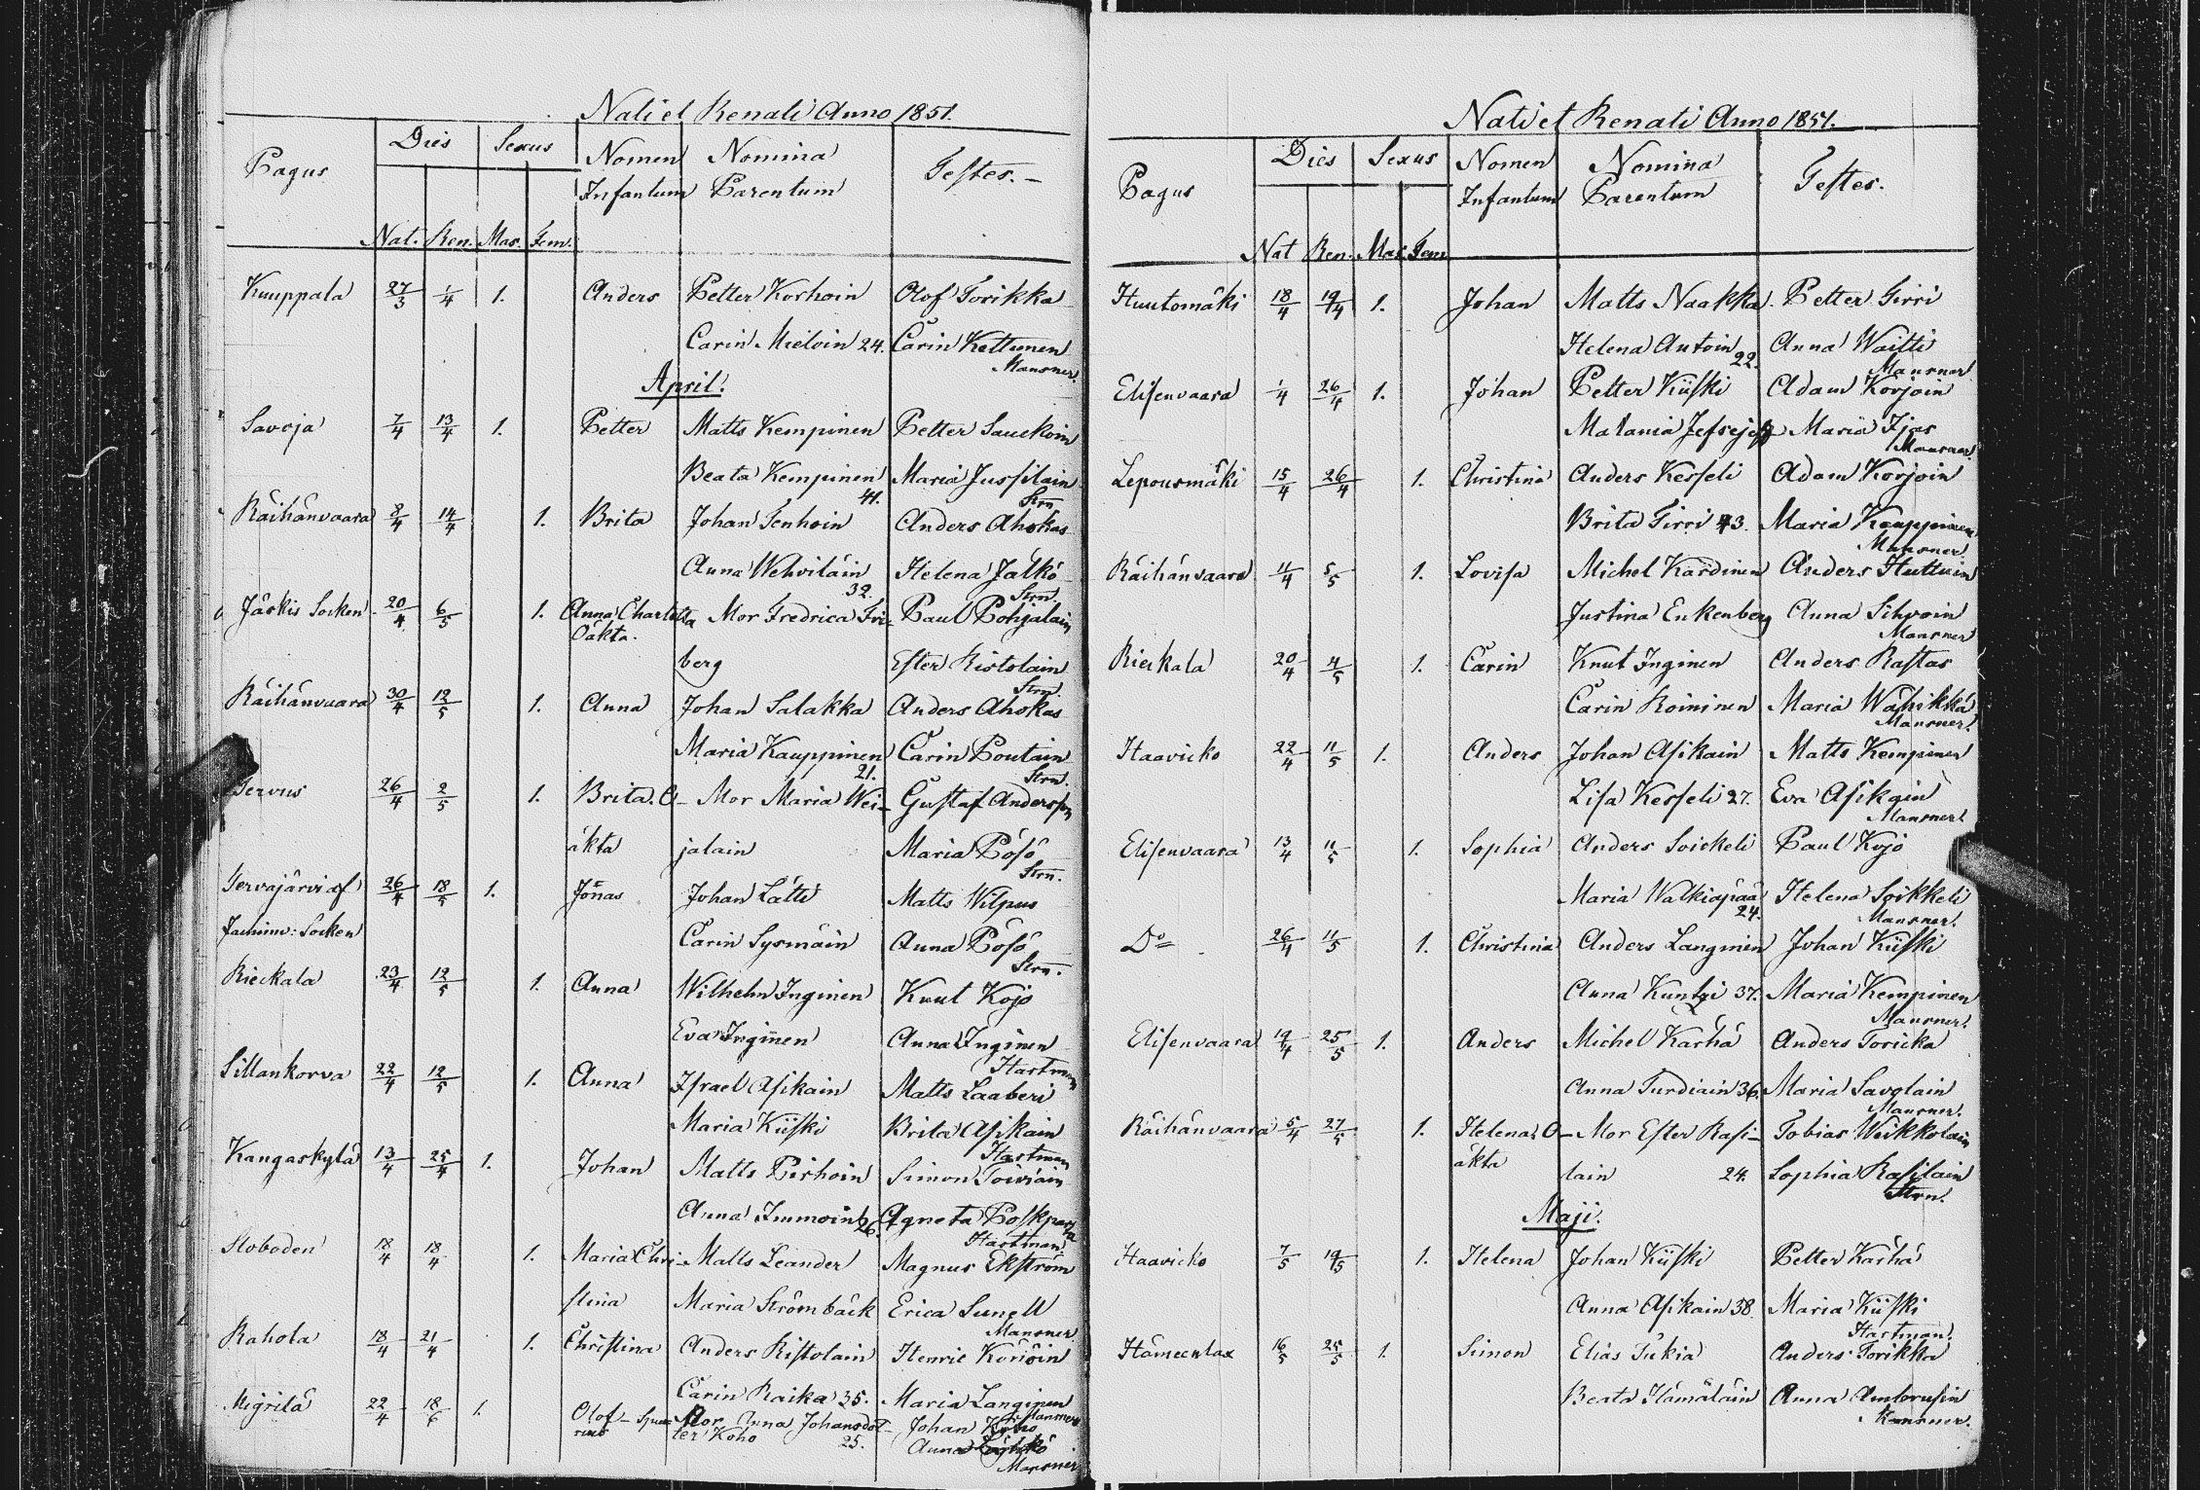 Nati et Renati Anno 1851.
Pagus Dies Sexus Nomen Nomina Testes.
Infantum Parentum
Nat. Ren. Mas. Fem.
Kuuppala 27/3 1/4 1. Anders Petter Korhoin Olof Torikka
Carin Mieloin 24. Carin Kettunen
Mansner.
April.
Savoja 7/4 13/4 1. Petter Matts Kempinen Petter Sauckoin
Beata Kempinen Maria Jussilain
41. Strn.
Räihänvaara 8/4 14/4 1. Brita Johan Tenhoin Anders Ahokas
Anna Wehviläin Helena Jälkö
32. Strn.
Jäskis Socken 20/4 6/5 1. Anna Charlotta Mor Fredrica Fri- Paul Pohjalain
Oäkta.
berg Ester Ristolain
Strn.
Räihänvaara 30/4 12/5 1. Anna Johan Salakka Anders Ahokas
Maria Kauppinen Carin Poutain
21. Strn.
Tervus 26/4 2/5 1. Brita. O- Mor Maria Wei- Gustaf Andersson
äkta jalain Maria Pösö
Strn.
Tervajärvi af 26/4 18/5 1. Jonas Johan Lätti Matts Wilpus
Jachim: Socken
Carin Sysmäin Anna Pösö
Strn.
Rieckala 23/4 12/5 1. Anna Wilhelm Inginen Knut Kojo
Eva Inginen Anna Inginen
Hartman
Sillankorva 22/4 12/5 1. Anna Israel Asikain Matts Laaberi
Maria Kiiski Brita Asikain
Hartman
Kangaskylä 13/4 25/4 1. Johan Matts Pirhoin Simon Toiviain
Anna Immoin 26. Agneta Poskparta
Hartman
Sloboden 18/4 18/4 1. Maria Chri- Matts Leander Magnus Ekström
stina Maria Strömbäck Erica Sunell
Mansner
Rahola 18/4 21/4 1. Christina Anders Ristolain Henric Koriöin
Carin Raika 35. Maria Langinen
Mansner
Migrilä 22/4 18/6 1. Olof - Spu- Mor Anna Johansdot- Johan Koho
rius ter Koho 25. Anna
Mansner
Nati et Renati Anno 1851.
Pagus Dies Sexus Nomen Nomina Testes.
Infantum Parentum
Nat Ren. Mas. Fem
Huutomäki 18/4 19/4 1. Johan Matts Naakka Petter Tirri
Helena Autoin Anna Waitti
22. Mansner
Elisenvaara 1/4 26/4 1. Johan Petter Kiiski Adam Korjoin
Malania Jefsejeff Maria Ijas
Mansner
Lepousmäki 15/4 26/4 1. Christina Anders Kesseli Adam Korjoin
Brita Tirri 43. Maria Kauppinen
Mansner
Räihänvaara 11/4 5/5 1. Lovisa Michel Kärdinen Anders Huttuin
Justina Enkenberg Anna Sihvoin
Mansner
Rieckala 20/4 4/5 1. Carin Knut Inginen Anders Rastas
Carin Roininen Maria Wahikka
Mansner.
Haavicko 22/4 11/5 1. Anders Johan Asikain Matts Kempinen
Lisa Kesseli 27. Eva Asikain
Mansner
Elisenvaara 13/4 11/5 1. Sophia Anders Soickeli Paul Kojo
Maria Walkiapää Helena Soikkeli
24. Mansner.
Do 26/4 11/5 1. Christina Anders Langinen Johan Kiiski
Anna Kuntzi 37. Maria Kempinen
Mansner.
Elisenvaara 19/4 25/5 1. Anders Michel Karhä Anders Toricka
Anna Turdiain 36. Maria Savolain
Mansner.
Räihänvaara 5/4 27/5 1. Helena. O- Mor Ester Rasi- Tobias Weikkolain
äkta lain 24. Sophia Rasilain
Strn.
Maji.
Haavicko 7/5 19/5 1. Helena Johan Kiiski Petter Karhä
Anna Asikain 38 Maria Kiiski
Hartman.
Hämeenlax 16/5 25/5 1. Simon Elias Tukia Anders Torikka
Beata Hämäläin Anna Ambrusin
Mansner.